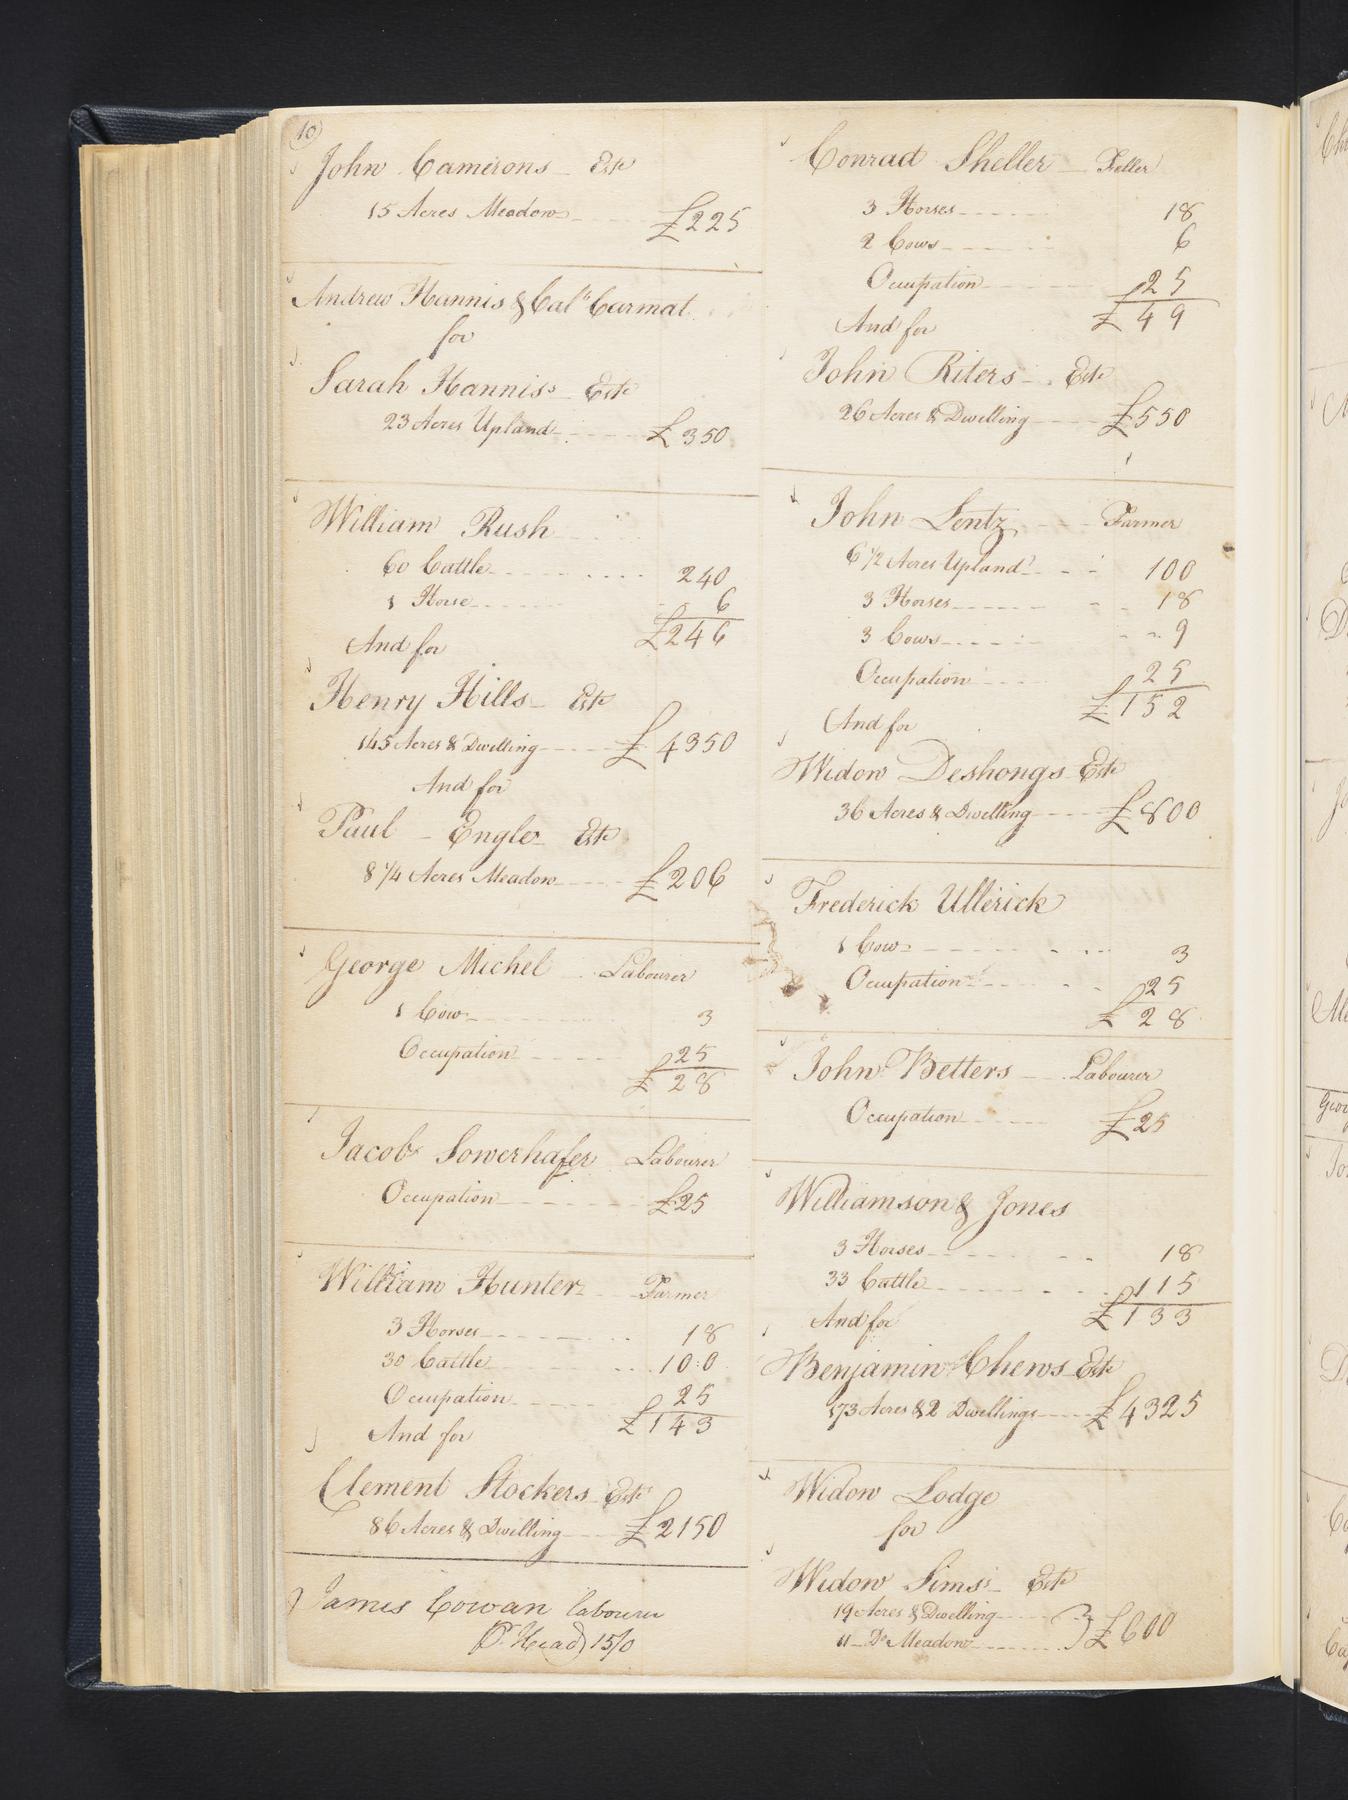 10
John Camerons Estn
15 Acres Meadow £225
Andrew Hannis & Calb Carmat
for
Sarah Hannis's Este
23 Acres Upland £350
William Rush
60 Cattle 240
1 Horse 6
£246
And for
Henry Hills Este
145 Acres & Dwelling £4350
And for
Paul Engle Este
8 1/4 Acres Meadow £206
George Michel Labourer
1 Cow 3
Occupation 25
£28
Jacob Sowerhafer Labourer
Occupation £25
William Hunter Farmer
3 Horses 18
30 Cattle 100
Occupation 25
£143
And for
Clement Stockers Este
86 Acres & Dwelling £2150
James Cowan labourer
(P. Head) 15/0
Conrad Sheller
3 Horses 18
2 Cows 6
Occupation 25
£49
And for
John Riters Este
26 Acres & Dwelling £550
John Lentz Farmer
6 1/2 Acres Upland 100
3 Horses 18
3 Cows 9
Occupation 25
£152
And for
Widow Deshongs Este
36 Acres & Dwelling £800
Frederick Ullerick
1 Cow 3
Occupation 25
£28
John Betters Labourer
Occupation £25
Williamson & Jones
3 Horses 18
33 Cattle 115
£133
And for
Benjamin Chews Este
173 Acres & 2 Dwellings £4325
Widow Lodge
for
Widow Sims's Este
19 Acres & Dwelling
11 Do Meadow } £600